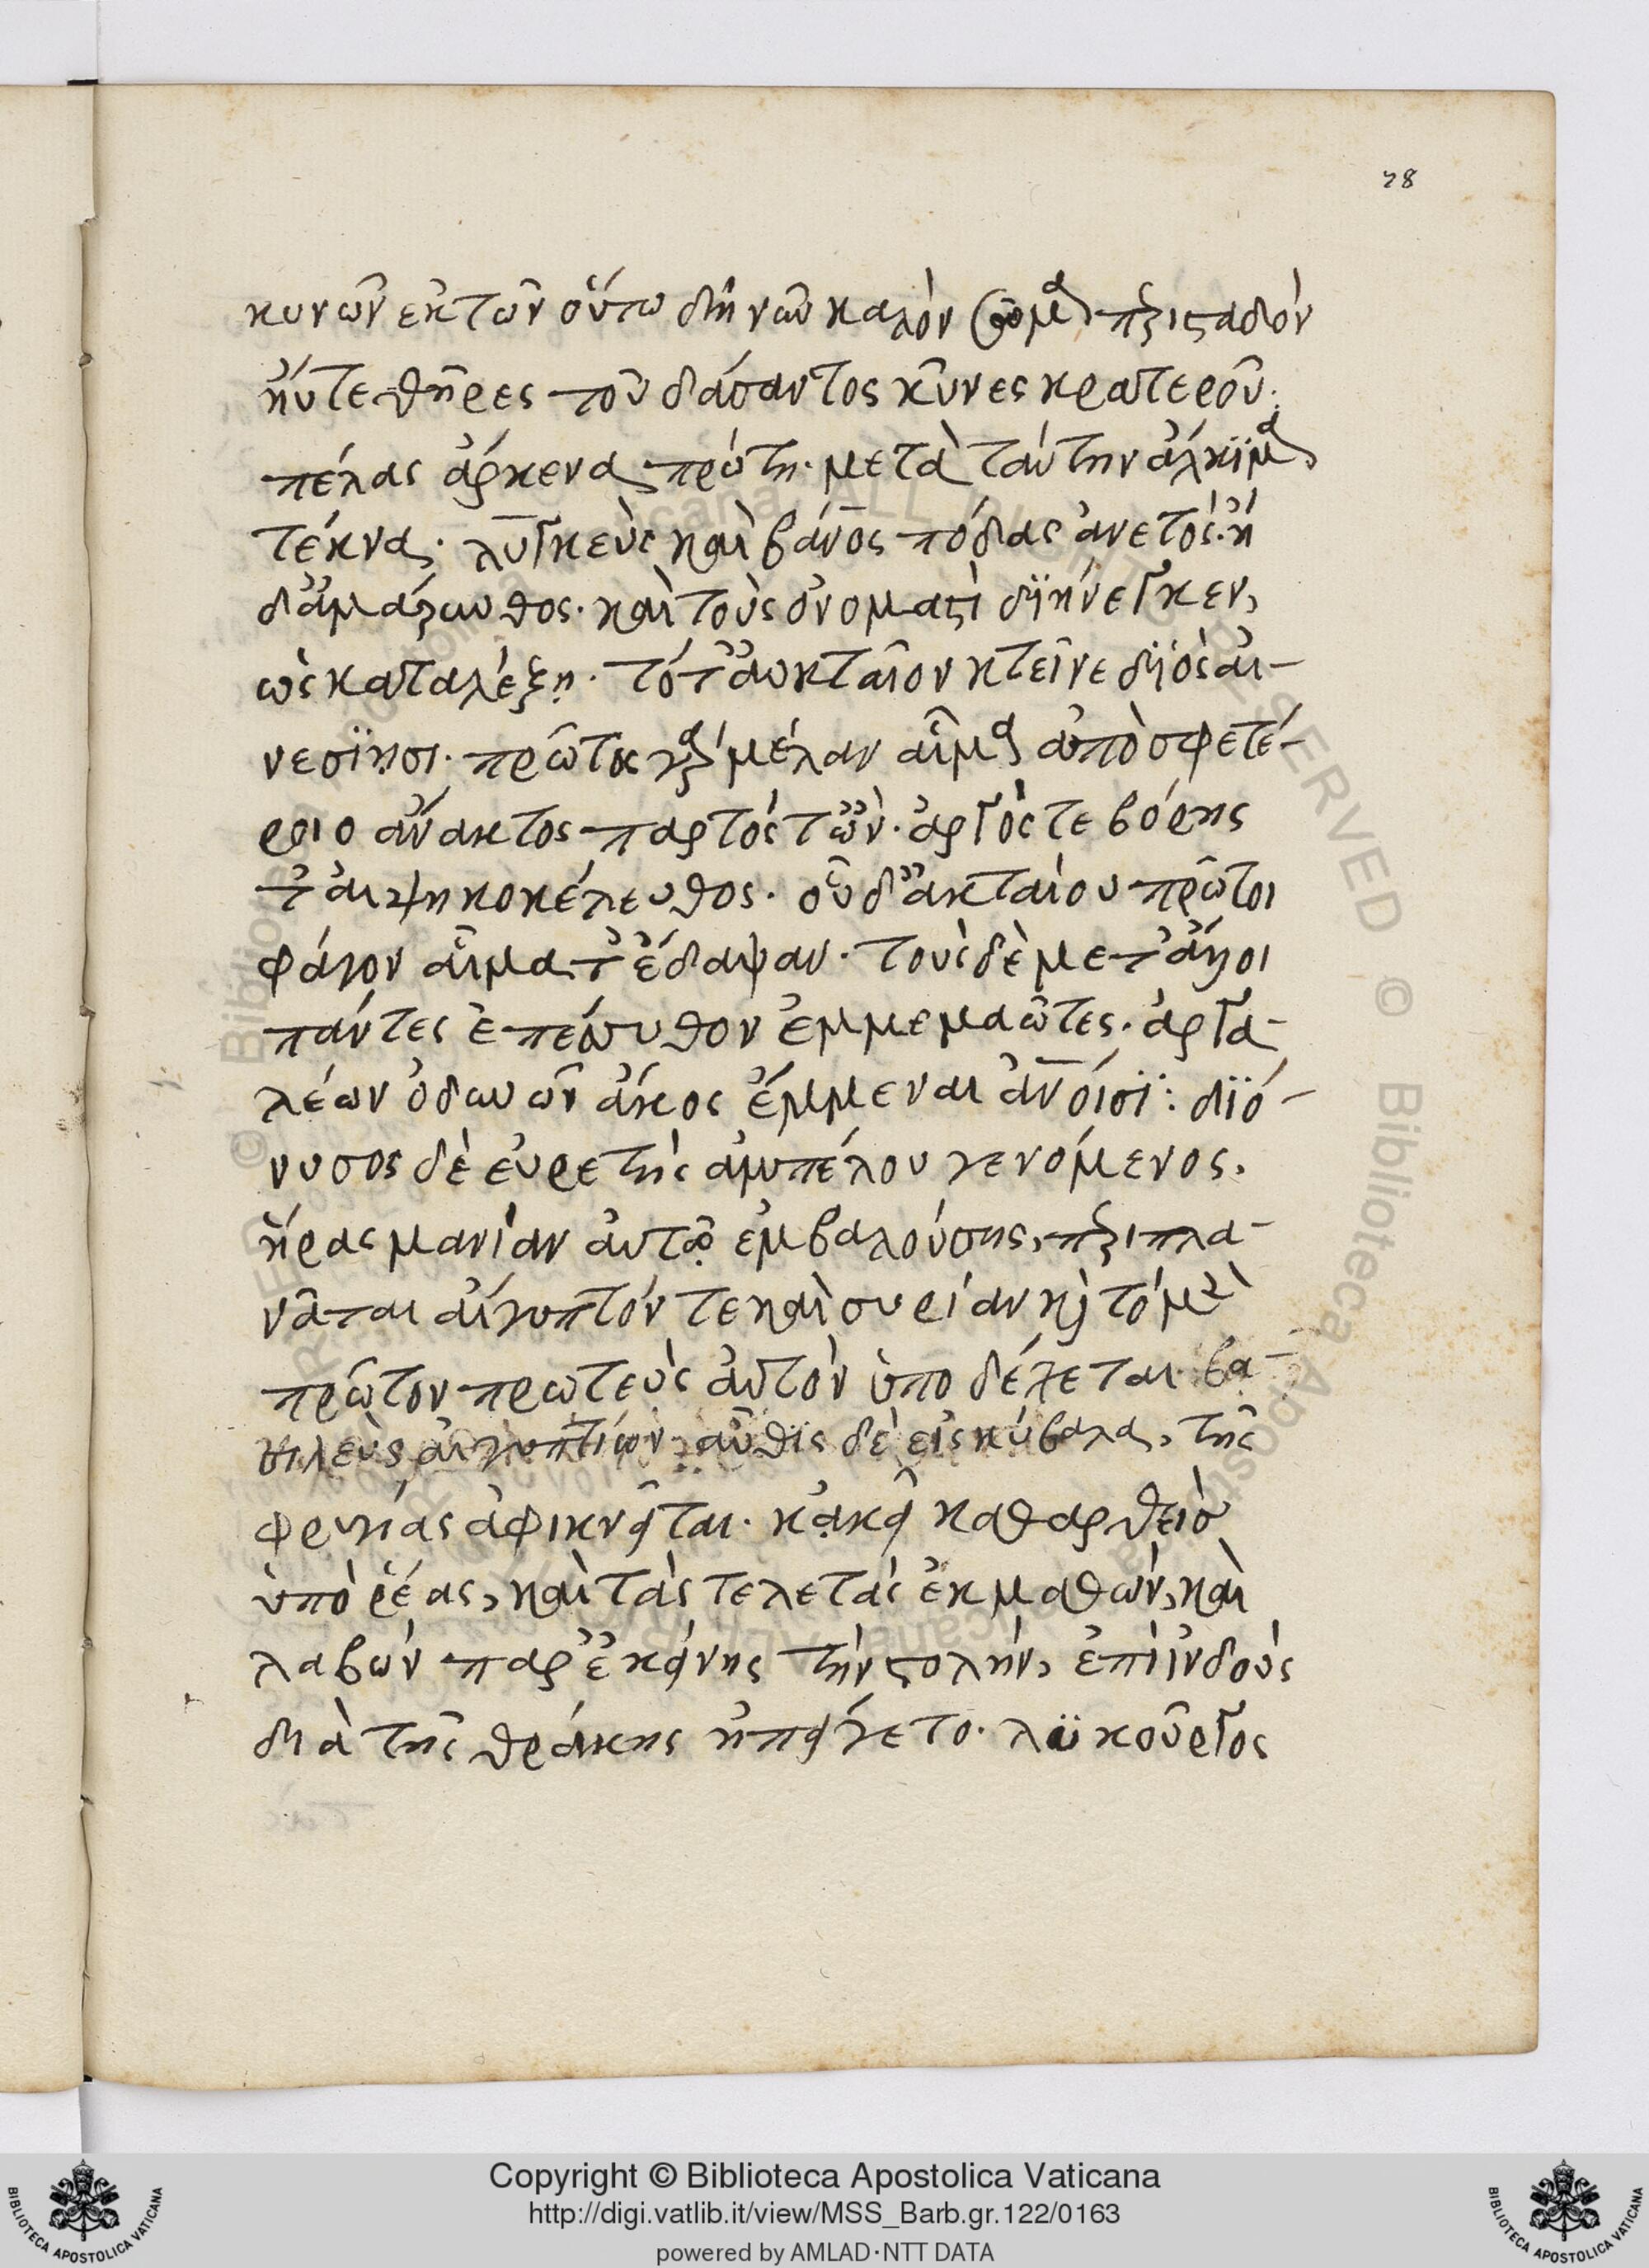 78
κυνῶν ἐκ τῶν οὕτω δὴ νῦν καλὸν σῶμα περισταδὸν
ἠύτε θῆρες τοῦ δάσαντος κῦνες κρατεροῦ.
πέλας ἄρκενα πρώτη. μετὰ ταύτην ἄλκϊμα
τέκνα. λυγκεὺς καὶ βάνος πόδας ἀνετός. ἠ
δ' ἀμάρυνθος. καὶ τοὺς ὀνομαστὶ δϊήνεγκεν,
ὡς καταλέξῃ. τότ' ἀυκταῖον κτεῖνε δϊὸς ἀι-
νεσϊῃσι. πρῶτος γὰρ μέλαν αἷμα ἀπὸ σφετέ-
ροιο ἄνακτος παρτός τ' ὢν. ἀργός τε βόρης
τ' αιψηκοκέλευθος. οὗ δ' ἀκταίου πρῶτοι
φάγον αἷμα τ' ἐδαψαν. τοὺς δὲ μετ' ἄλλοι
πάντες ἐπέσυθον ἐμμεμαῶτες. ἀργα-
λέων ὀδυνῶν ἄκος ἔμμεναι ἀνοίσϊ: δϊό-
νυσος δὲ εὑρετὴς ἀμπέλου γενόμενος.
ἥρας μανίαν ἀυτῷ ἐμβαλούσης, περιπλα-
νᾶται αἴγυπτόν τε καὶ συρίαν κὶ τὸ μὲν
πρῶτον πρωτεὺς ἀυτὸν ὑπο δέχεται βα-
σιλεὺς ἀιγυπτίων. αὖθϊς δὲ εἰς κύβαλα, τῆς
φρυγίας ἀφικνεῖται. κἀκεῖ καθαρθεὶς
ὑπὸ ῥέας, καὶ τὰς τελετὰς ἐκμαθών, καὶ
λαβὼν παρ' ἐκείνης τὴν στολήν, ἐπὶ ἰνδοὺς
διὰ τῆς θράκης ἠπείγετο. λϋκοῦργος
© Biblioteca Apostolica Vaticana, ALL RIGHTS RESERVED
Copyright © Biblioteca Apostolica Vaticana
http://digi.vatlib.it/view/MSS_Barb.gr.122/0163
powered by AMLAD·NTT DATA
BIBLIOTECA APOSTOLICA VATICANA
BIBLIOTECA APOSTOLICA VATICANA